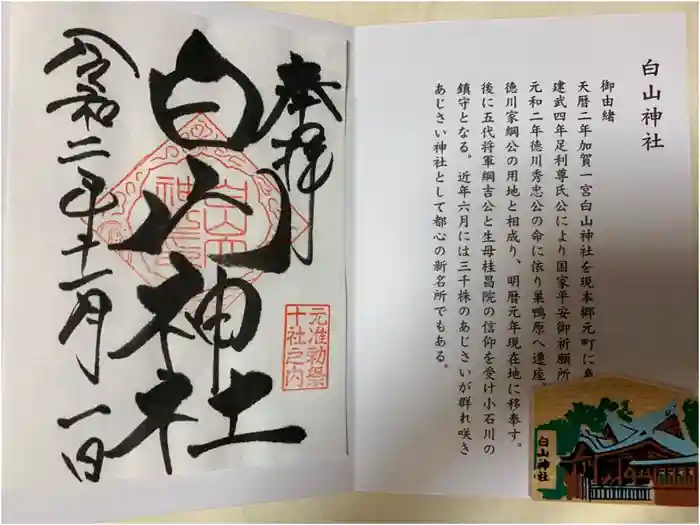 白山神社
御由緒
天暦二年加賀一宮白山神社を現本郷元町に
建武四年足利尊氏公により国家平安御祈願所
元和二年徳川秀忠公の命に依り巣鴨原へ遷座
徳川家綱公の用地と相成り、明暦元年現在地に移奉す。
後に五代将軍綱吉公と生母桂昌院の信仰を受け小石川の
鎮守となる。近年六月には三千株のあじさいが群れ咲き
あじさい神社として都心の新名所でもある。
白山神社
奉拝
白山神社
元准勅祭
十社之内
令和二年十一月一日